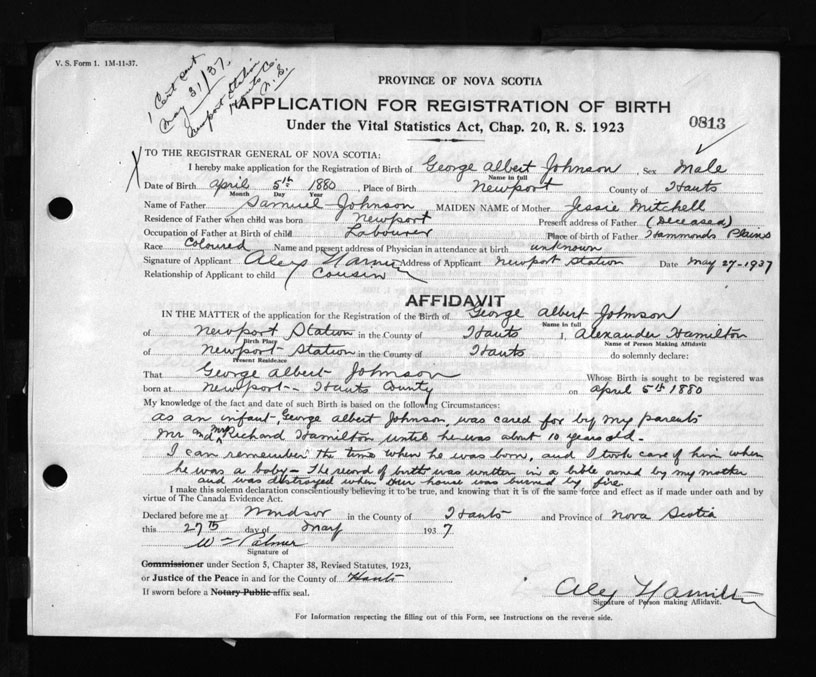 V. S. Form 1. 1M-11-37.
1 Cert sent
May 31/37.
Newport Station
Hants Co.
N. S.
PROVINCE OF NOVA SCOTIA
APPLICATION FOR REGISTRATION OF BIRTH
Under the Vital Statistics Act, Chap. 20, R. S. 1923
0813
X TO THE REGISTRAR GENERAL OF NOVA SCOTIA:
I hereby make application for the Registration of Birth of George Albert Johnson, Sex Male
Name in full
Date of Birth April 5th 1880, Place of Birth Newport County of Hants
Month Day Year
Name of Father Samuel Johnson MAIDEN NAME of Mother Jessie Mitchell
Residence of Father when child was born Newport Present address of Father (Deceased)
Occupation of Father at Birth of child Labourer Place of birth of Father Hammonds Plains
Race Coloured Name and present address of Physician in attendance at birth unknown
Signature of Applicant Alex Hamilton Address of Applicant Newport Station Date May 27-1937
Relationship of Applicant to child Cousin
AFFIDAVIT
IN THE MATTER of the application for the Registration of the Birth of George Albert Johnson
Name in full
of Newport Station in the County of Hants I, Alexander Hamilton
Birth Place Name of Person Making Affidavit
of Newport Station in the County of Hants do solemnly declare:
Present Residence
That George Albert Johnson Whose Birth is sought to be registered was
born at Newport - Hants County on April 5th 1880
My knowledge of the fact and date of such Birth is based on the following Circumstances:
As an infant, George Albert Johnson, was cared for by my parents
Mr and Mrs Richard Hamilton until he was about 10 years old.
I can remember the time when he was born, and I took care of him when
he was a baby - The record of birth was written in a bible owned by my mother
and was destroyed when our house was burned by fire
I make this solemn declaration conscientiously believing it to be true, and knowing that it is of the same force and effect as if made under oath and by
virtue of The Canada Evidence Act.
Declared before me at Windsor in the County of Hants and Province of Nova Scotia
this 27th day of May 1937
W Palmer
Signature of
Commissioner under Section 5, Chapter 38, Revised Statutes, 1923,
or Justice of the Peace in and for the County of Hants
If sworn before a Notary Public affix seal.
Alex Hamilton
Signature of Person making Affidavit.
For Information respecting the filling out of this Form, see Instructions on the reverse side.